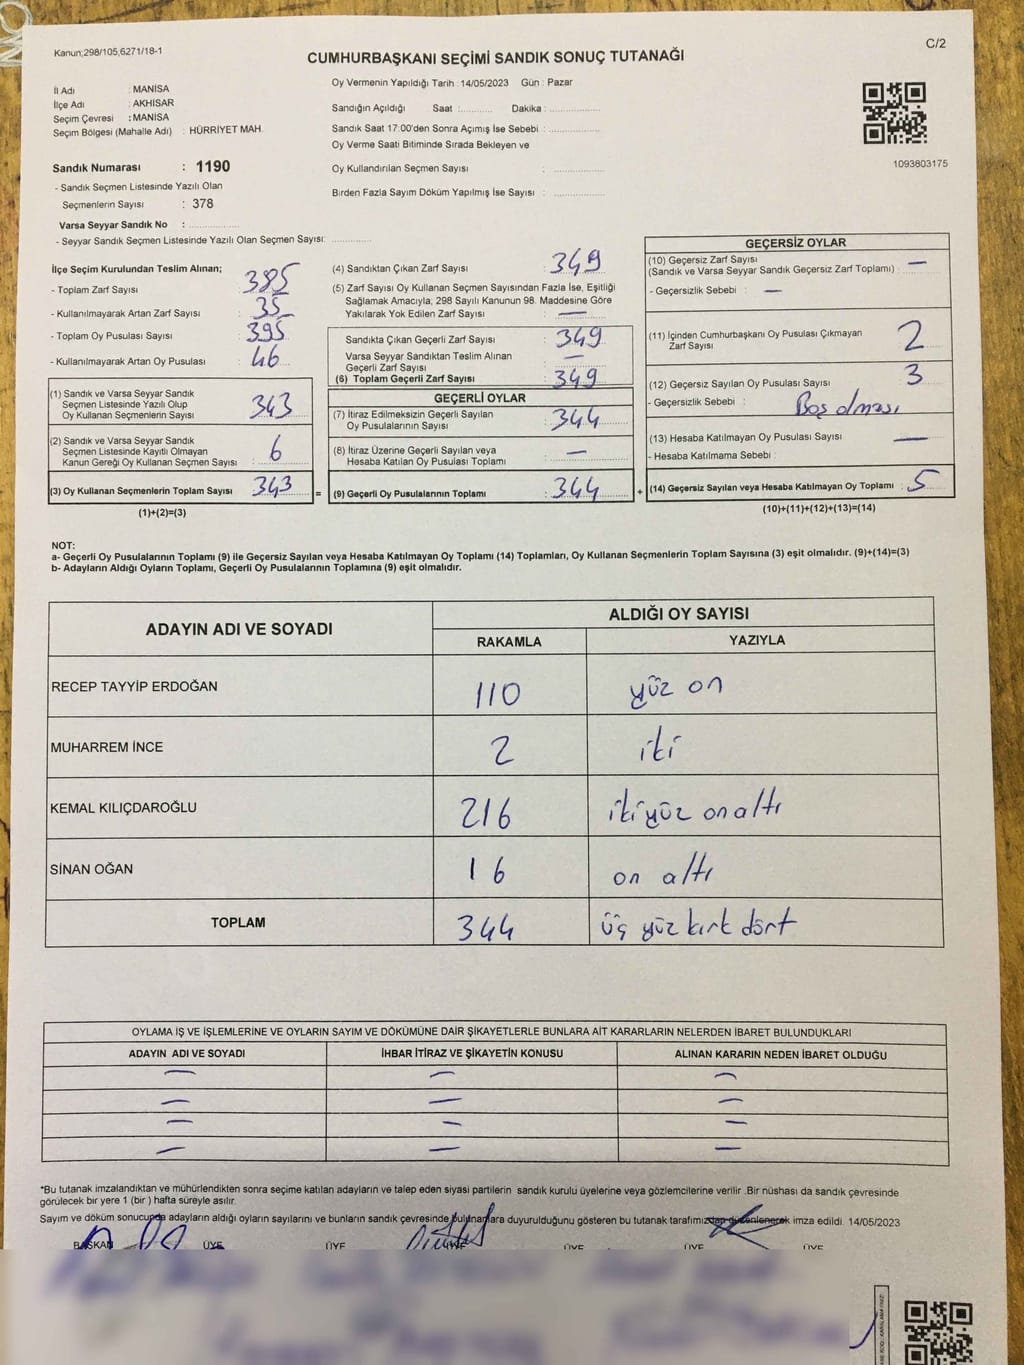 Kanun;298/105,6271/18-1
C/2
CUMHURBAŞKANI SEÇİMİ SANDIK SONUÇ TUTANAĞI
İl Adı : MANİSA
İlçe Adı : AKHİSAR
Seçim Çevresi : MANİSA
Seçim Bölgesi (Mahalle Adı) : HÜRRİYET MAH.
Sandık Numarası : 1190
- Sandık Seçmen Listesinde Yazılı Olan
Seçmenlerin Sayısı : 378
Varsa Seyyar Sandık No :
- Seyyar Sandık Seçmen Listesinde Yazılı Olan Seçmen Sayısı:
Oy Vermenin Yapıldığı Tarih : 14/05/2023 Gün : Pazar
Sandığın Açıldığı Saat : Dakika :
Sandık Saat 17:00'den Sonra Açımış İse Sebebi :
Oy Verme Saati Bitiminde Sırada Bekleyen ve
Oy Kullandırılan Seçmen Sayısı :
Birden Fazla Sayım Döküm Yapılmış İse Sayısı :
1093803175
İlçe Seçim Kurulundan Teslim Alınan;
- Toplam Zarf Sayısı : 385
- Kullanılmayarak Artan Zarf Sayısı : 35
- Toplam Oy Pusulası Sayısı : 395
- Kullanılmayarak Artan Oy Pusulası : 46
(1) Sandık ve Varsa Seyyar Sandık
Seçmen Listesinde Yazılı Olup
Oy Kullanan Seçmenlerin Sayısı : 343
(2) Sandık ve Varsa Seyyar Sandık
Seçmen Listesinde Kayıtlı Olmayan
Kanun Gereği Oy Kullanan Seçmen Sayısı : 6
(3) Oy Kullanan Seçmenlerin Toplam Sayısı : 343 =
(1)+(2)=(3)
(4) Sandıktan Çıkan Zarf Sayısı : 349
(5) Zarf Sayısı Oy Kullanan Seçmen Sayısından Fazla İse, Eşitliği
Sağlamak Amacıyla; 298 Sayılı Kanunun 98. Maddesine Göre
Yakılarak Yok Edilen Zarf Sayısı : —
Sandıkta Çıkan Geçerli Zarf Sayısı : 349
Varsa Seyyar Sandıktan Teslim Alınan
Geçerli Zarf Sayısı : —
(6) Toplam Geçerli Zarf Sayısı : 349
GEÇERLİ OYLAR
(7) İtiraz Edilmeksizin Geçerli Sayılan
Oy Pusulalarının Sayısı : 344
(8) İtiraz Üzerine Geçerli Sayılan veya
Hesaba Katılan Oy Pusulası Toplamı : —
(9) Geçerli Oy Pusulalarının Toplamı : 344 +
GEÇERSİZ OYLAR
(10) Geçersiz Zarf Sayısı
(Sandık ve Varsa Seyyar Sandık Geçersiz Zarf Toplamı) : —
- Geçersizlik Sebebi : —
(11) İçinden Cumhurbaşkanı Oy Pusulası Çıkmayan
Zarf Sayısı : 2
(12) Geçersiz Sayılan Oy Pusulası Sayısı : 3
- Geçersizlik Sebebi : Boş olması
(13) Hesaba Katılmayan Oy Pusulası Sayısı : —
- Hesaba Katılmama Sebebi :
(14) Geçersiz Sayılan veya Hesaba Katılmayan Oy Toplamı : 5
(10)+(11)+(12)+(13)=(14)
NOT:
a- Geçerli Oy Pusulalarının Toplamı (9) ile Geçersiz Sayılan veya Hesaba Katılmayan Oy Toplamı (14) Toplamları, Oy Kullanan Seçmenlerin Toplam Sayısına (3) eşit olmalıdır. (9)+(14)=(3)
b- Adayların Aldığı Oyların Toplamı, Geçerli Oy Pusulalarının Toplamına (9) eşit olmalıdır.
ADAYIN ADI VE SOYADI
ALDIĞI OY SAYISI
RAKAMLA YAZIYLA
RECEP TAYYİP ERDOĞAN 110 yüz on
MUHARREM İNCE 2 iki
KEMAL KILIÇDAROĞLU 216 iki yüz on altı
SİNAN OĞAN 16 on altı
TOPLAM 344 üç yüz kırk dört
OYLAMA İŞ VE İŞLEMLERİNE VE OYLARIN SAYIM VE DÖKÜMÜNE DAİR ŞİKAYETLERLE BUNLARA AİT KARARLARIN NELERDEN İBARET BULUNDUKLARI
ADAYIN ADI VE SOYADI İHBAR İTİRAZ VE ŞİKAYETİN KONUSU ALINAN KARARIN NEDEN İBARET OLDUĞU
— — —
— — —
— — —
— — —
*Bu tutanak imzalandıktan ve mühürlendikten sonra seçime katılan adayların ve talep eden siyasi partilerin sandık kurulu üyelerine veya gözlemcilerine verilir .Bir nüshası da sandık çevresinde
görülecek bir yere 1 (bir ) hafta süreyle asılır.
Sayım ve döküm sonucunda adayların aldığı oyların sayılarını ve bunların sandık çevresinde bulunanlara duyurulduğunu gösteren bu tutanak tarafımızdan düzenlenerek imza edildi. 14/05/2023
BAŞKAN ÜYE ÜYE ÜYE ÜYE ÜYE ÜYE